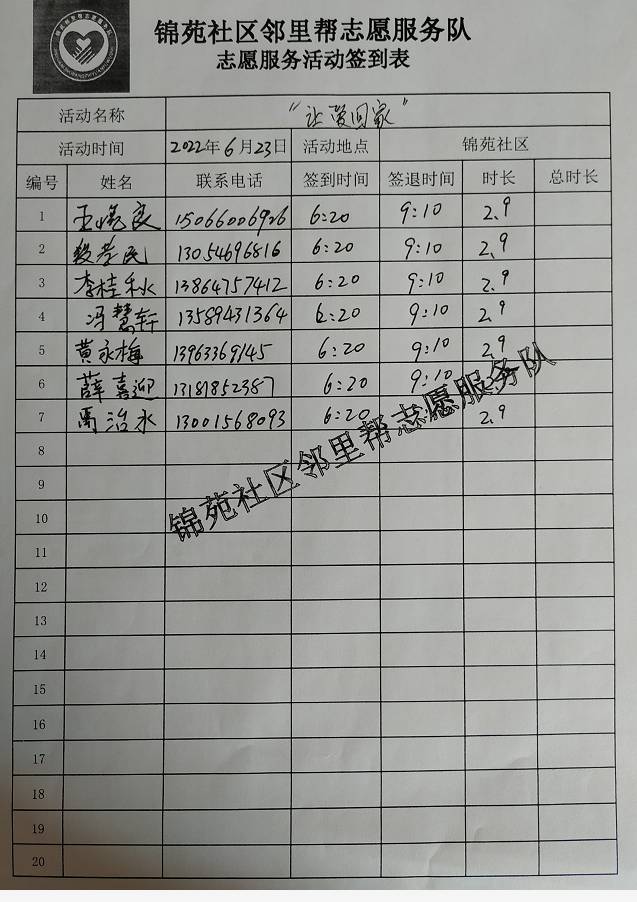 锦苑社区邻里帮志愿服务队
志愿服务活动签到表
活动名称 "让爱回家"
活动时间 2022年6月23日 活动地点 锦苑社区
编号 姓名 联系电话 签到时间 签退时间 时长 总时长
1 王 良 15066006926 6:20 9:10 2.9
2 段孝民 13054696816 6:20 9:10 2.9
3 李桂秋 13864757412 6:20 9:10 2.9
4 冯慧轩 13589431364 6:20 9:10 2.9
5 黄永梅 13963369145 6:20 9:10 2.9
6 薛喜迎 13181852387 6:20 9:10
7 禹治水 13001568093 6:20 2.9
8
9
10
11
12
13
14
15
16
17
18
19
20
锦苑社区邻里帮志愿服务队